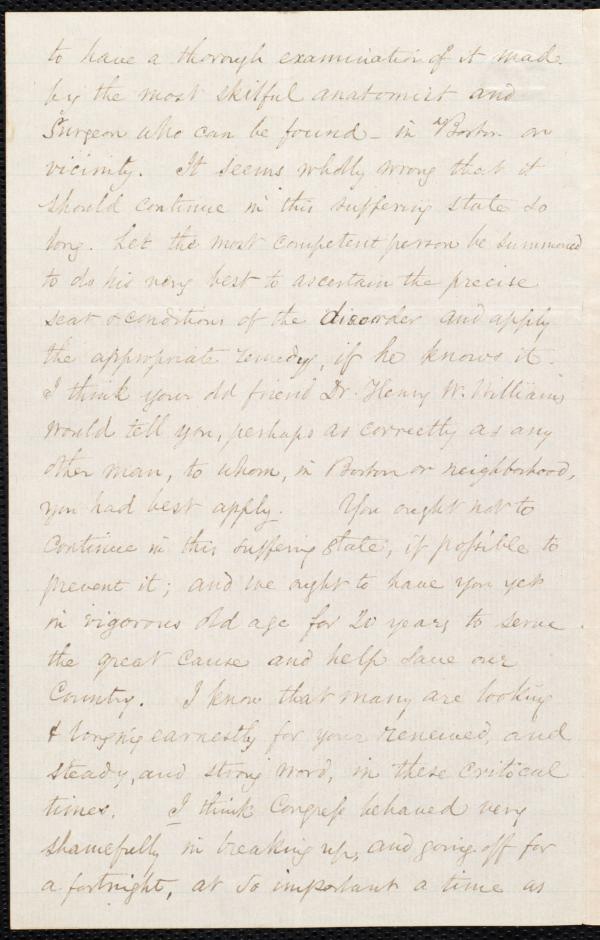 to have a thorough examination of it made
by the most skilful anatomist and
Surgeon who can be found - in Boston or
vicinity. It seems wholly wrong that it
should continue in this suffering state so
long. Let the most competent person be summoned
to do his very best to ascertain the precise
seat & conditions of the disorder and apply
the appropriate remedy, if he knows it.
I think your old friend Dr. Henry W. Williams
would tell you, perhaps as correctly as any
other man, to whom, in Boston or neighborhood,
you had best apply. You ought not to
continue in this suffering state, if possible to
prevent it; and we ought to have you yet
in vigorous old age for 20 years to serve
the great cause and help save our
Country. I know that many are looking
& longing earnestly for your renewed, and
steady, and strong word, in these critical
times. I think Congress behaved very
shamefully in breaking up, and going off for
a fortnight, at so important a time as